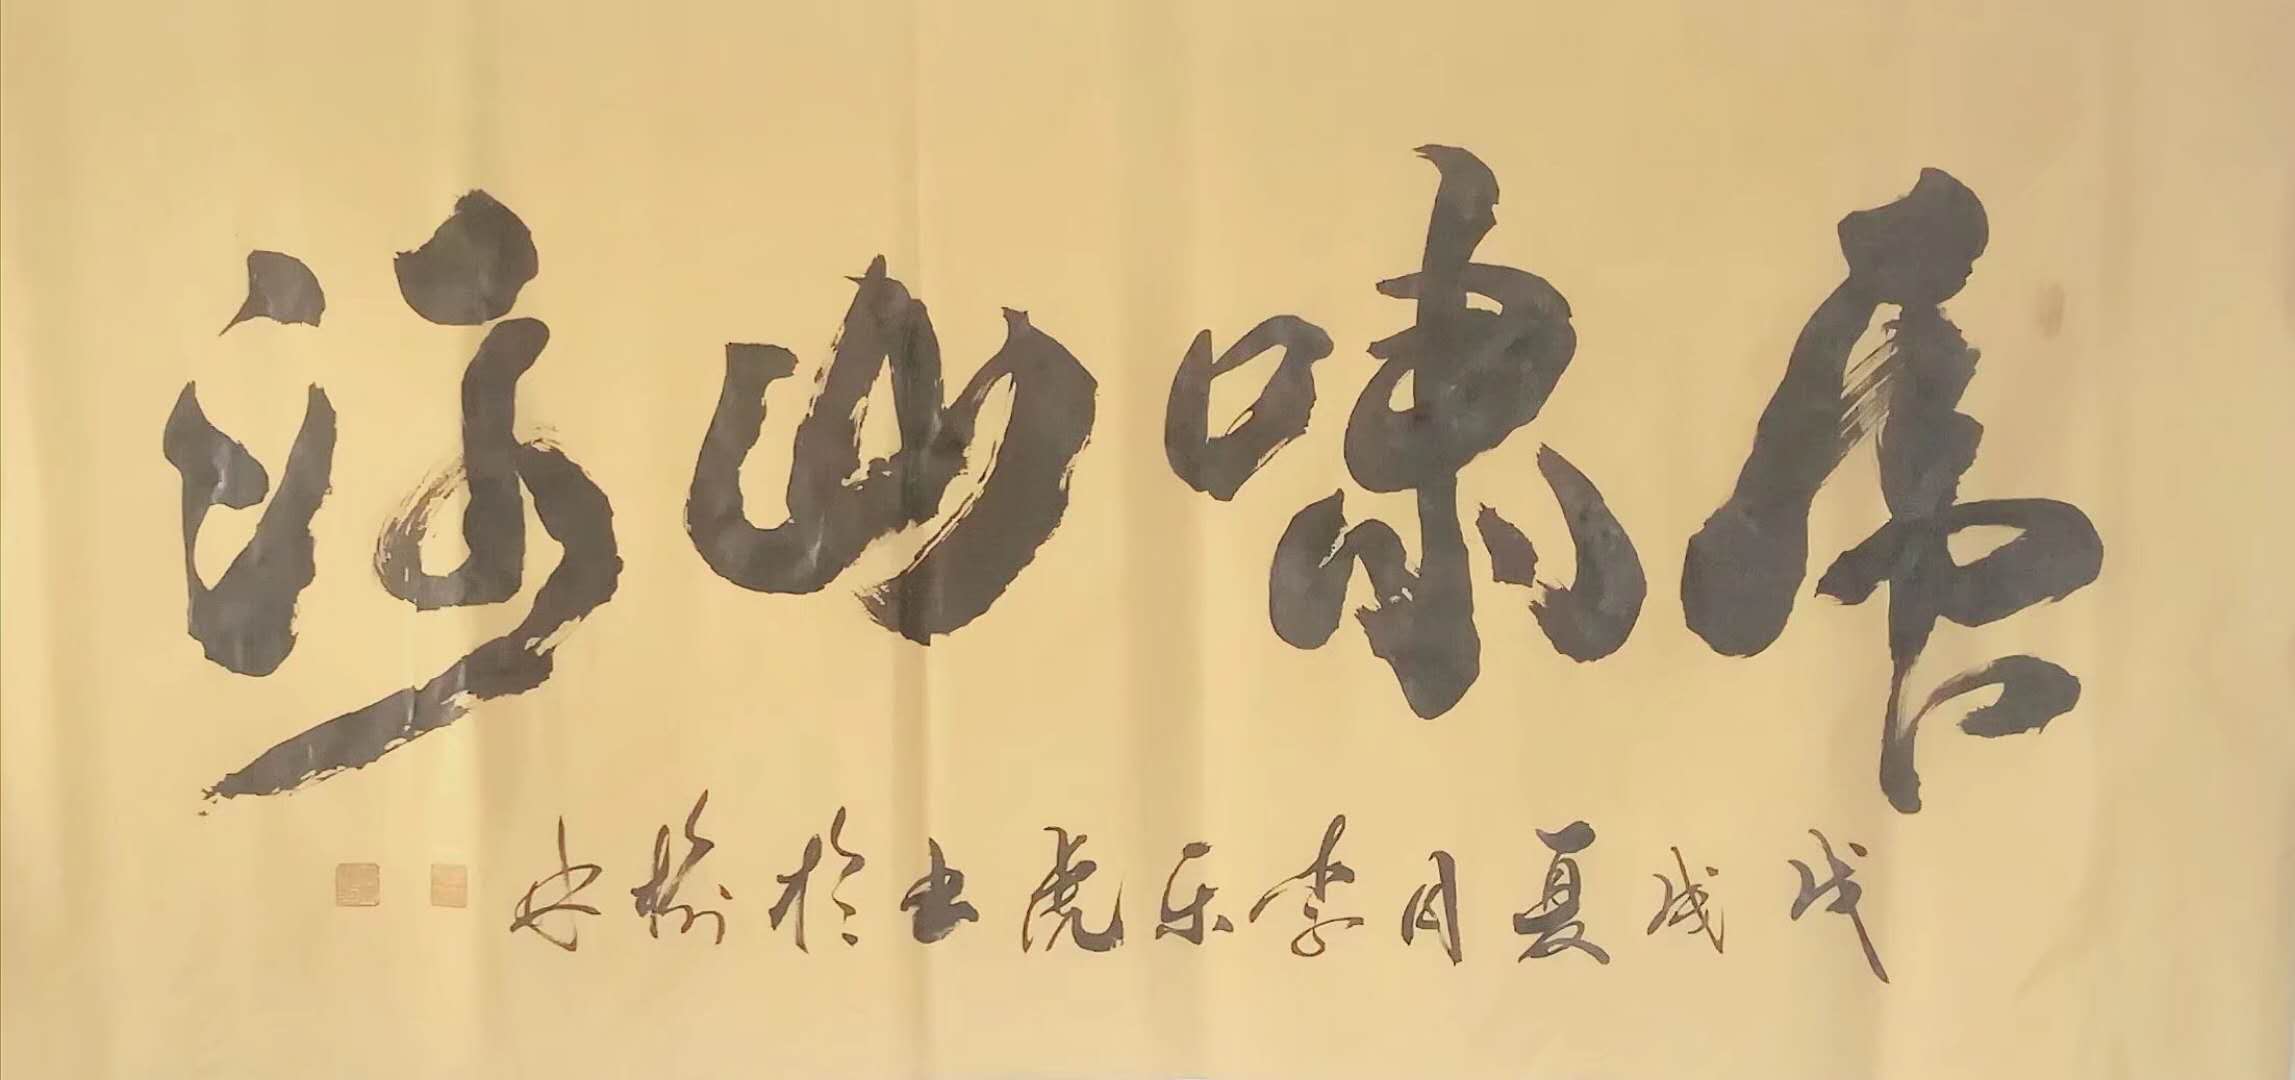 虎啸山河
戊戌夏月李乐虎书於榆